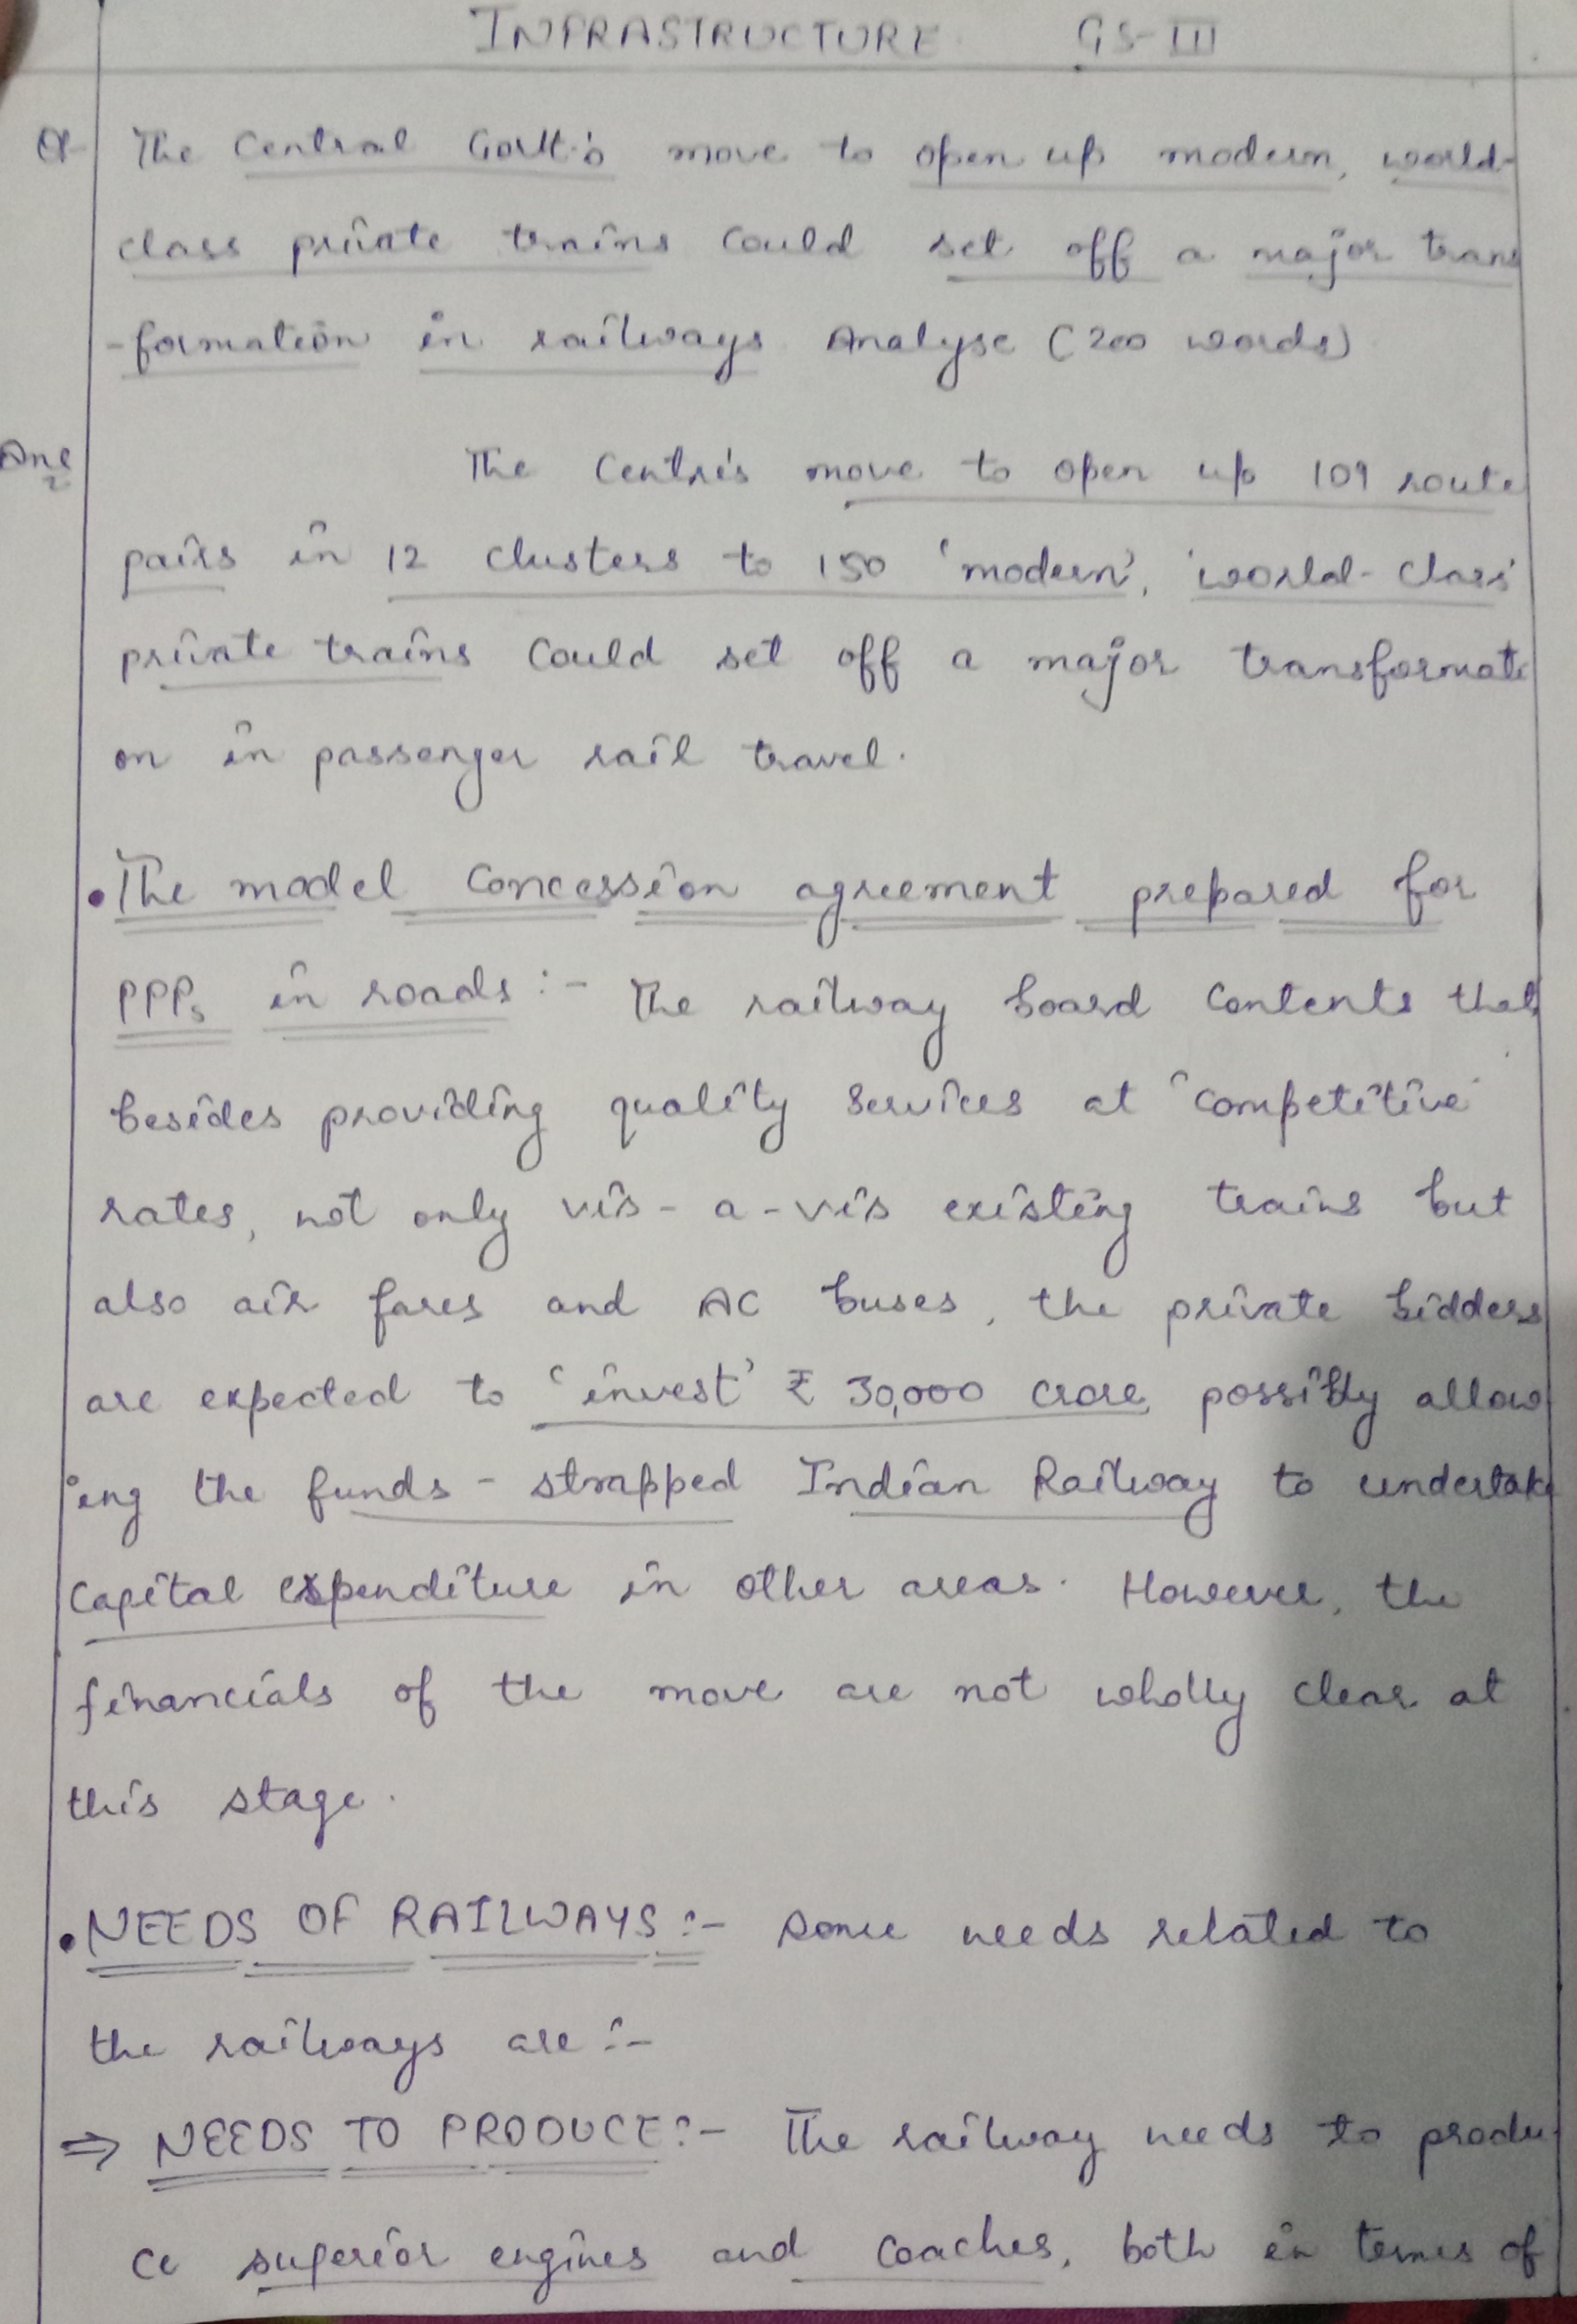 INFRASTRUCTURE GS-III
Q The Central Govt.'s move to open up modern, world-
class private trains could set off a major trans
-formation in railways Analyse (200 words)
Ans The Centre's move to open up 109 route
pairs in 12 clusters to 150 'modern', 'world-class'
private trains could set off a major transformati
on in passenger rail travel.
• The model concession agreement prepared for
PPPs in roads :- The railway board contents that
besides providing quality services at 'competitive'
rates, not only vis-a-vis existing trains but
also air fares and AC buses, the private bidders
are expected to 'invest' ₹ 30,000 crore, possibly allow
ing the funds - strapped Indian Railway to undertake
capital expenditure in other areas. However, the
financials of the move are not wholly clear at
this stage.
• NEEDS OF RAILWAYS :- Some needs related to
the railways are :-
⇒ NEEDS TO PRODUCE :- The railway needs to produ-
ce superior engines and coaches, both in terms of